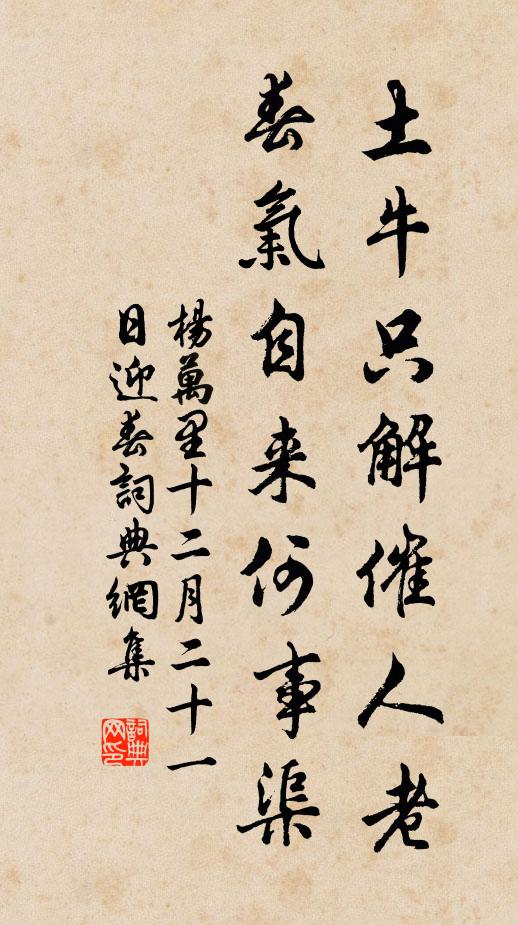 土牛只解催人老
春氣自来何事渠
楊萬里十二月二十一
日迎春詞典網集
詞典网印